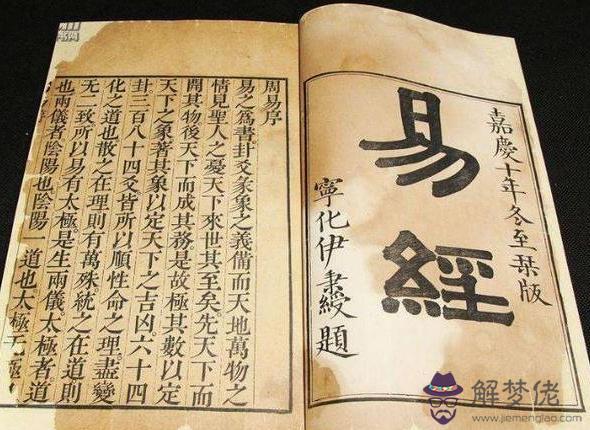 嘉慶十年冬至栞版
易經
寧化伊秉綬題
周易序
易之爲書卦爻彖象之義備而天地萬物之
情見聖人之憂天下來世其至矣先天下而
開其物後天下而成其務是故極其數以定
天下之象著其象以定天下之吉凶六十四
卦三百八十四爻皆所以順性命之理盡變
化之道也散之在理則有萬殊統之在道則
無二致所以易有太極是生兩儀太極者道
也兩儀者陰陽也陰陽一道也太極無極
解梦佬
www.jiemenglao.com